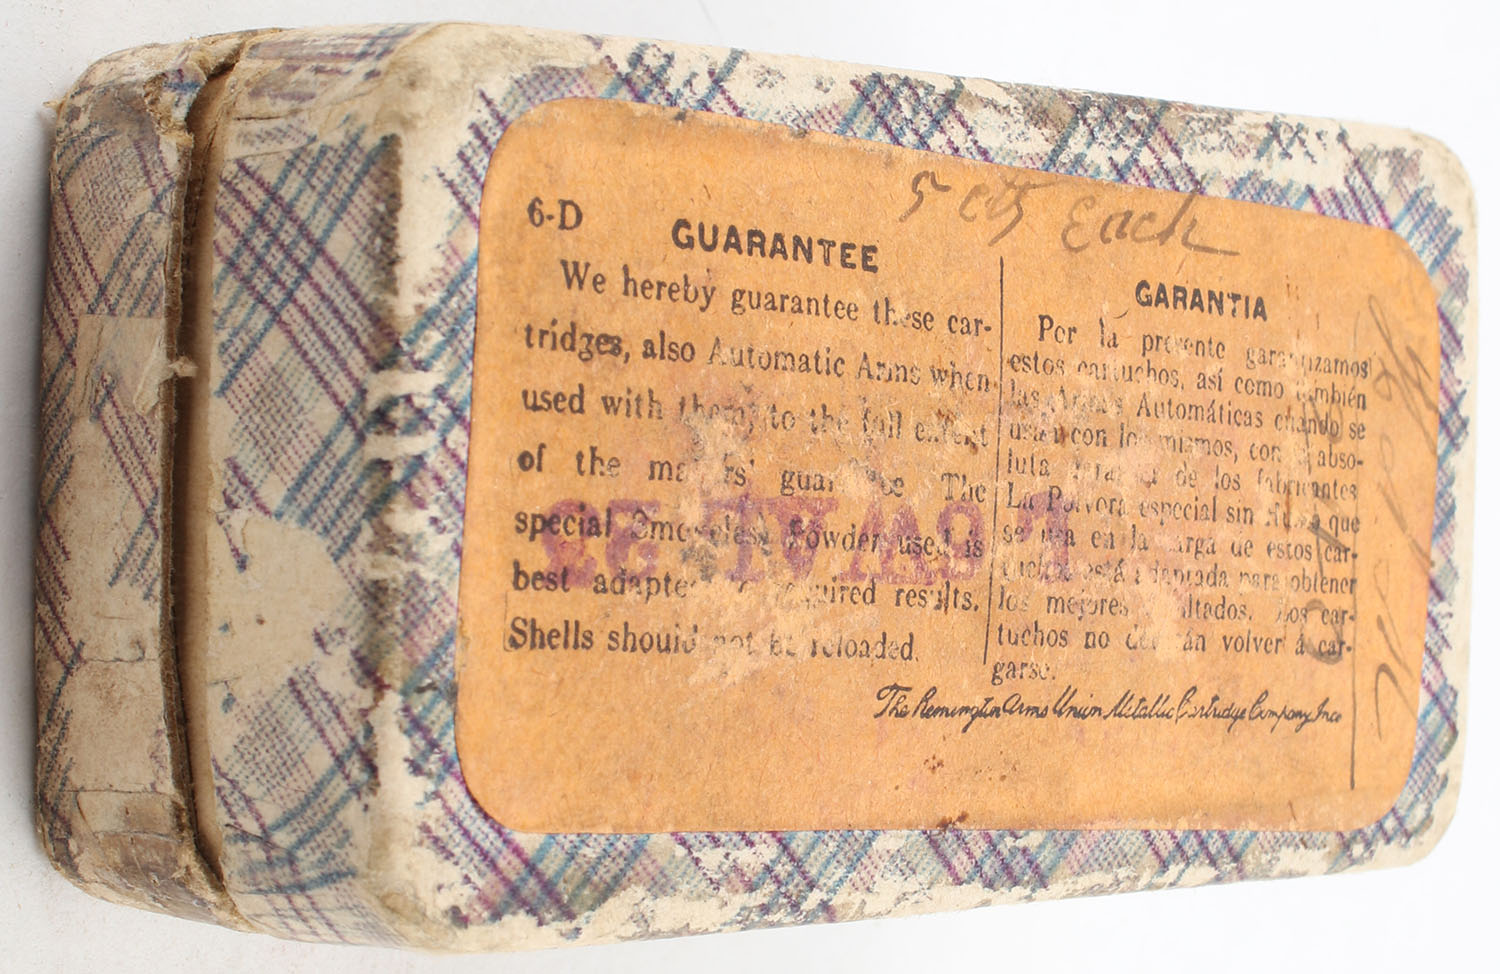 5 cts Each
6-D
GUARANTEE
We hereby guarantee these car-
tridges, also Automatic Arms when
used with them, to the full extent
of the makers' guarantee The
special Smokeless Powder used is
best adapted required results.
Shells should not be reloaded.
GARANTIA
Por la presente garantizamos
estos cartuchos, así como también
las Armas Automáticas cuando se
usan con los mismos, con abso-
luta de los fabricantes
La Polvora especial sin Humo que
se usa en la carga de estos car-
tuchos está adaptada para obtener
los mejores resultados. Los car-
tuchos no deberán volver á car-
garse.
The Remington Arms Union Metallic Cartridge Company, Inc.